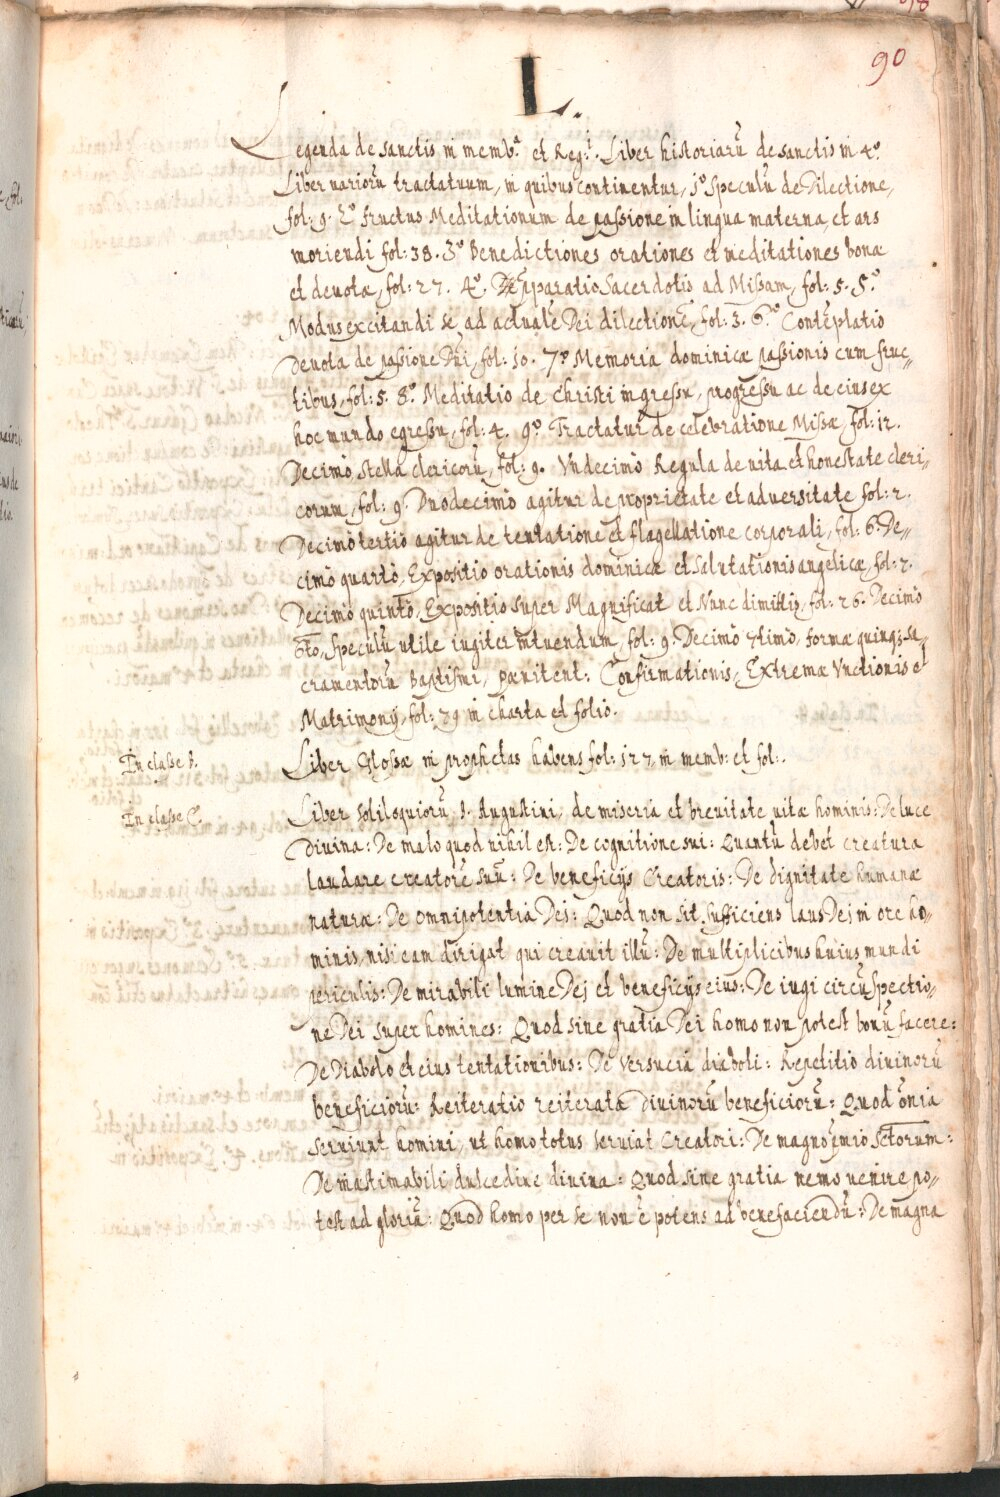 90
L.
Legenda de sanctis in memb.ª et Reg.ª. Liber historiarū de sanctis in 4º.
Liber uariorū tractatuum, in quibus continentur, 1º Speculū de Dilectione,
fol: 9. 2.º fructus Meditationum de passione in lingua materna, et ars
moriendi fol: 38. 3.º Benedictiones orationes et meditationes bonæ
et deuotæ, fol: 27. 4.º. p̄paratio Sacerdotis ad Missam, fol: 5. 5.º
Modus excitandi se ad actualē Dei dilectionē, fol: 3. 6.º Contēplatio
deuota de passione Dn̄i, fol: 10. 7.º Memoria dominicæ passionis cum fruc„
tibus, fol: 5. 8.º Meditatio de Christi ingressu, progressu ac de eius ex
hoc mundo egressu, fol: 4. 9.º Tractatur de celebratione Missæ, fol: 12.
Decimo, Stella clericorū, fol: 9. Vndecimo Regula de uita et honestate cleri„
corum, fol: 9. Duodecimo agitur de proprietate et aduersitate fol: 2.
Decimo tertio agitur de tentatione et flagellatione corporali, fol: 6. De„
cimo quarto, Expositio orationis dominicæ et Salutationis angelicæ, fol: 7.
Decimo quinto, Expositio super Magnificat et Nunc dimittis, fol: 26. Decimo
6to, Speculū utile iugiter intuendum, fol: 9. Decimo 7timo, formæ quinq; sa„
cramentorū Baptismi, pœnitent: Confirmationis, Extremæ Vnctionis et
Matrimonij, fol: 79 in charta et folio.
In classe B.
Liber Glossæ in prophetas habens fol: 127, in memb: et fol:.
In classe C.
Liber soliloquiorū S. Augustini, de miseria et breuitate uitæ hominis: De luce
diuina: De malo quod nihil est: De cognitione sui: Quantū debet creatura
laudare creatorē suū: De beneficijs Creatoris: De dignitate humanæ
naturæ: De omnipotentia Dei: Quod non sit sufficiens laus Dei in ore ho„
minis, nisi eam dirigat qui creauit illū: De multiplicibus huius mundi
periculis: De mirabili lumine Dei et beneficijs eius: De iugi circūspectio„
ne Dei super homines: Quod sine gratia Dei homo non potest bonū facere:
De Diabolo et eius tentationibus: De versucia diaboli: Repetitio diuinorū
beneficiorū: Reiteratio reiterata diuinorū beneficiorū: Quod ōnia
seruiunt homini, ut homo totus seruiat Creatori: De magno p̄mio Sctorum:
De inæstimabili dulcedine diuina: Quod sine gratia nemo uenire po„
test ad gloriā: Quod homo per se non ē potens ad benefaciendū: De magna